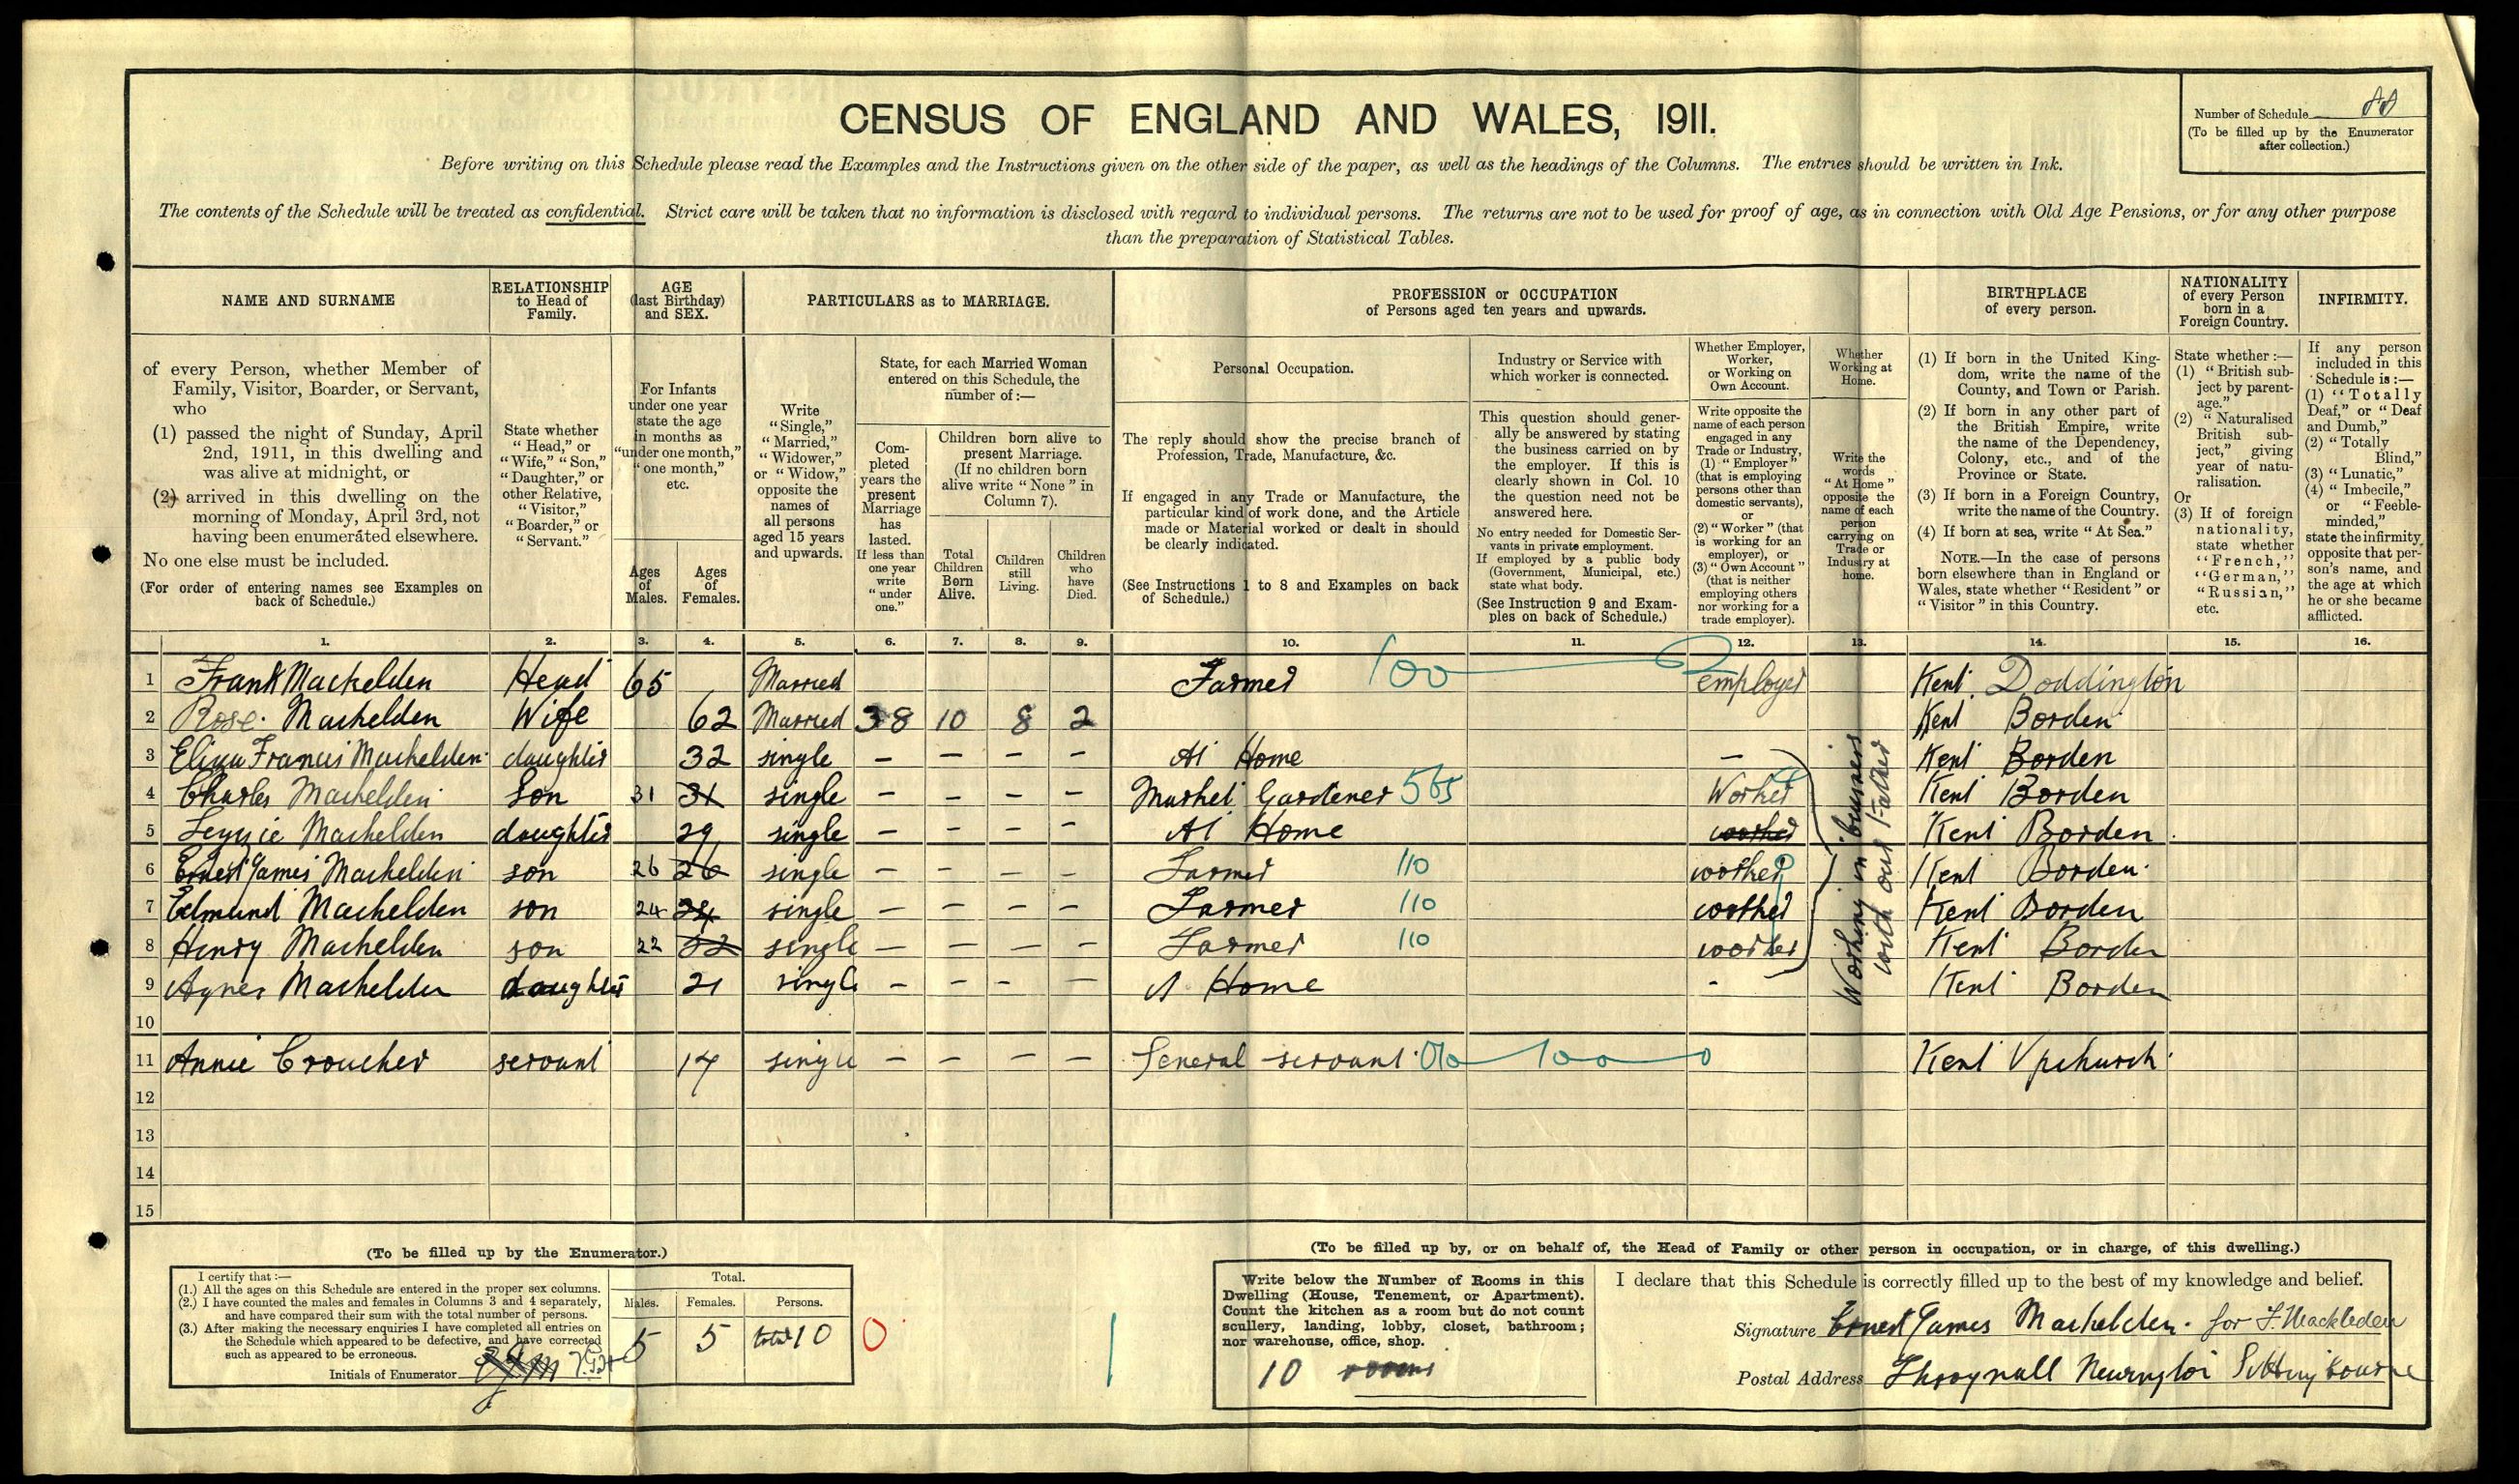 CENSUS OF ENGLAND AND WALES, 1911.
Number of Schedule
(To be filled up by the Enumerator
after collection.)
Before writing on this Schedule please read the Examples and the Instructions given on the other side of the paper, as well as the headings of the Columns. The entries should be written in Ink.
The contents of the Schedule will be treated as confidential. Strict care will be taken that no information is disclosed with regard to individual persons. The returns are not to be used for proof of age, as in connection with Old Age Pensions, or for any other purpose
than the preparation of Statistical Tables.
NAME AND SURNAME
of every Person, whether Member of
Family, Visitor, Boarder, or Servant,
who
(1) passed the night of Sunday, April
2nd, 1911, in this dwelling and
was alive at midnight, or
(2) arrived in this dwelling on the
morning of Monday, April 3rd, not
having been enumerated elsewhere.
No one else must be included.
(For order of entering names see Examples on
back of Schedule.)
RELATIONSHIP
to Head of
Family.
State whether
"Head," or
"Wife," "Son,"
"Daughter," or
other Relative,
"Visitor,"
"Boarder," or
"Servant."
AGE
(last Birthday)
and SEX.
For Infants
under one year
state the age
in months as
"under one month,"
"one month,"
etc.
Ages
of
Males.
Ages
of
Females.
PARTICULARS as to MARRIAGE.
Write
"Single,"
"Married,"
"Widower,"
or "Widow,"
opposite the
names of
all persons
aged 15 years
and upwards.
State, for each Married Woman
entered on this Schedule, the
number of:—
Com-
pleted
years the
present
Marriage
has
lasted.
If less than
one year
write
"under
one."
Children born alive to
present Marriage.
(If no children born
alive write "None" in
Column 7).
Total
Children
Born
Alive.
Children
still
Living.
Children
who
have
Died.
PROFESSION or OCCUPATION
of Persons aged ten years and upwards.
Personal Occupation.
The reply should show the precise branch of
Profession, Trade, Manufacture, &c.
If engaged in any Trade or Manufacture, the
particular kind of work done, and the Article
made or Material worked or dealt in should
be clearly indicated.
(See Instructions 1 to 8 and Examples on back
of Schedule.)
Industry or Service with
which worker is connected.
This question should gener-
ally be answered by stating
the business carried on by
the employer. If this is
clearly shown in Col. 10
the question need not be
answered here.
No entry needed for Domestic Ser-
vants in private employment.
If employed by a public body
(Government, Municipal, etc.)
state what body.
(See Instruction 9 and Exam-
ples on back of Schedule.)
Whether Employer,
Worker,
or Working on
Own Account.
Write opposite the
name of each person
engaged in any
Trade or Industry,
(1) "Employer"
(that is employing
persons other than
domestic servants),
or
(2) "Worker" (that
is working for an
employer), or
(3) "Own Account"
(that is neither
employing others
nor working for a
trade employer).
Whether
Working at
Home.
Write the
words
"At Home"
opposite the
name of each
person
carrying on
Trade or
Industry at
home.
BIRTHPLACE
of every person.
(1) If born in the United King-
dom, write the name of the
County, and Town or Parish.
(2) If born in any other part of
the British Empire, write
the name of the Dependency,
Colony, etc., and of the
Province or State.
(3) If born in a Foreign Country,
write the name of the Country.
(4) If born at sea, write "At Sea."
NOTE.—In the case of persons
born elsewhere than in England or
Wales, state whether "Resident" or
"Visitor" in this Country.
NATIONALITY
of every Person
born in a
Foreign Country.
State whether:—
(1) "British sub-
ject by parent-
age."
(2) "Naturalised
British sub-
ject," giving
year of natu-
ralisation.
Or
(3) If of foreign
nationality,
state whether
"French,"
"German,"
"Russian,"
etc.
INFIRMITY.
If any person
included in this
Schedule is:—
(1) "Totally
Deaf," or "Deaf
and Dumb,"
(2) "Totally
Blind,"
(3) "Lunatic,"
(4) "Imbecile,"
or "Feeble-
minded,"
state the infirmity
opposite that per-
son's name, and
the age at which
he or she became
afflicted.
1. 2. 3. 4. 5. 6. 7. 8. 9. 10. 11. 12. 13. 14. 15. 16.
1 Frank Mackelden Head 65 Married Farmer 100 employer Kent Doddington
2 Rose Mackelden Wife 62 Married 38 10 8 2 Kent Borden
3 Eliza Francis Mackelden daughter 32 single — — — — At Home — Kent Borden
4 Charles Mackelden Son 31 31 single — — — — Market Gardener 565 Worker Kent Borden
5 Mackelden daughter 29 single — — — — At Home worker Kent Borden
6 Ernest James Mackelden son 26 26 single — — — — Farmer 110 worker Kent Borden
7 Edmund Mackelden son 24 24 single — — — — Farmer 110 worker Kent Borden
8 Henry Mackelden son 22 22 single — — — — Farmer 110 worker Kent Borden
9 Agnes Mackelden daughter 21 single — — — — At Home - Kent Borden
Working in business
with our Father
10
11 Annie Croucher servant 17 single — — — — General servant 100 0 Kent Upchurch
12
13
14
15
(To be filled up by the Enumerator.)
I certify that:—
(1.) All the ages on this Schedule are entered in the proper sex columns.
(2.) I have counted the males and females in Columns 3 and 4 separately,
and have compared their sum with the total number of persons.
(3.) After making the necessary enquiries I have completed all entries on
the Schedule which appeared to be defective, and have corrected
such as appeared to be erroneous.
Initials of Enumerator
Total.
Males. Females. Persons.
5 5 total 10
0
1
(To be filled up by, or on behalf of, the Head of Family or other person in occupation, or in charge, of this dwelling.)
Write below the Number of Rooms in this
Dwelling (House, Tenement, or Apartment).
Count the kitchen as a room but do not count
scullery, landing, lobby, closet, bathroom;
nor warehouse, office, shop.
10 rooms
I declare that this Schedule is correctly filled up to the best of my knowledge and belief.
Signature Ernest James Mackelden. for F. Mackleden
Postal Address Newington Sittingbourne